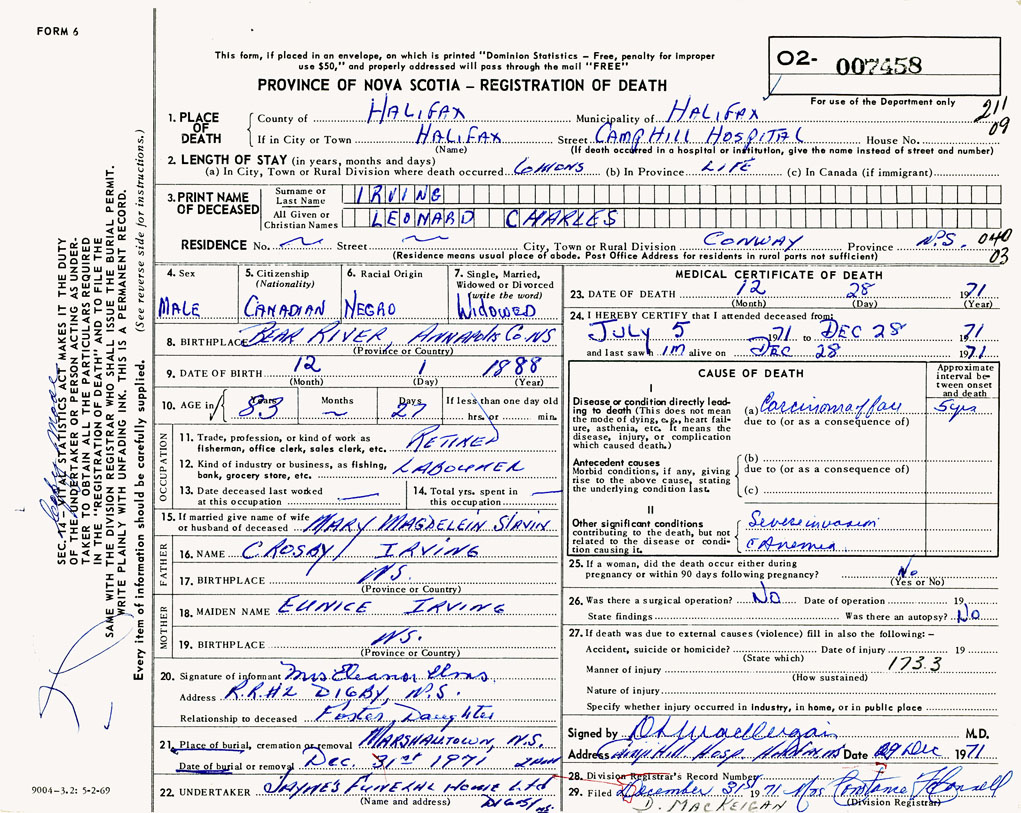 FORM 6
This form, if placed in an envelope, on which is printed "Dominion Statistics – Free, penalty for improper
use $50," and properly addressed will pass through the mail "FREE"
PROVINCE OF NOVA SCOTIA – REGISTRATION OF DEATH
O2- 007458
For use of the Department only
211
09
1. PLACE OF DEATH
County of HALIFAX Municipality of HALIFAX
If in City or Town HALIFAX Street CAMP HILL HOSPITAL House No.
(Name) (If death occurred in a hospital or institution, give the name instead of street and number)
2. LENGTH OF STAY (in years, months and days)
(a) In City, Town or Rural Division where death occurred 6 MONS (b) In Province LIFE (c) In Canada (if immigrant)
3. PRINT NAME OF DECEASED
Surname or Last Name IRVING
All Given or Christian Names LEONARD CHARLES
RESIDENCE No. ~ Street ~ City, Town or Rural Division CONWAY Province N.S. 040
(Residence means usual place of abode. Post Office Address for residents in rural parts not sufficient) 03
4. Sex
MALE
5. Citizenship (Nationality)
CANADIAN
6. Racial Origin
NEGRO
7. Single, Married, Widowed or Divorced (write the word)
WIDOWED
8. BIRTHPLACE BEAR RIVER, ANNAPOLIS CO NS
(Province or Country)
9. DATE OF BIRTH 12 1 1888
(Month) (Day) (Year)
10. AGE in Years 83 Months ~ Days 27 If less than one day old hrs. or min.
OCCUPATION
11. Trade, profession, or kind of work as fisherman, office clerk, sales clerk, etc. RETIRED
12. Kind of industry or business, as fishing, bank, grocery store, etc. LABOURER
13. Date deceased last worked at this occupation —
14. Total yrs. spent in this occupation —
15. If married give name of wife or husband of deceased MARY MAGDELEIN SLAVIN
FATHER
16. NAME CROSBY IRVING
17. BIRTHPLACE N.S.
(Province or Country)
MOTHER
18. MAIDEN NAME EUNICE IRVING
19. BIRTHPLACE N.S.
(Province or Country)
20. Signature of informant Mrs. Eleanor Elms.
Address R.R.#2 DIGBY, N.S.
Relationship to deceased Foster Daughter
21. Place of burial, cremation or removal MARSHALLTOWN, N.S.
Date of burial or removal Dec. 31st 1971 2 PM
22. UNDERTAKER JAYNE'S FUNERAL HOME Ltd
(Name and address) DIGBY NS.
MEDICAL CERTIFICATE OF DEATH
23. DATE OF DEATH 12 28 1971
(Month) (Day) (Year)
24. I HEREBY CERTIFY that I attended deceased from:
JULY 5 1971 to DEC 28 1971
and last saw him alive on DEC 28 1971
CAUSE OF DEATH
Approximate interval between onset and death
I
Disease or condition directly leading to death (This does not mean the mode of dying, e.g., heart failure, asthenia, etc. It means the disease, injury, or complication which caused death.)
(a) Carcinoma face 5 yrs
due to (or as a consequence of)
Antecedent causes
Morbid conditions, if any, giving rise to the above cause, stating the underlying condition last.
(b)
due to (or as a consequence of)
(c)
II
Other significant conditions contributing to the death, but not related to the disease or condition causing it.
Severe invasion
c Anemia
25. If a woman, did the death occur either during pregnancy or within 90 days following pregnancy? No
(Yes or No)
26. Was there a surgical operation? NO Date of operation 19
State findings Was there an autopsy? NO
27. If death was due to external causes (violence) fill in also the following: –
Accident, suicide or homicide? Date of injury 19
(State which)
Manner of injury 173.3
(How sustained)
Nature of injury
Specify whether injury occurred in industry, in home, or in public place
Signed by M.D.
Address Camp Hill Hosp. Halifax NS Date 29 Dec 1971
28. Division Registrar's Record Number
29. Filed December 31st 1971 Mrs Constance
D. MACKEIGAN (Division Registrar)
SEC. 14 – VITAL STATISTICS ACT MAKES IT THE DUTY
OF THE UNDERTAKER OR PERSON ACTING AS UNDER-
TAKER TO OBTAIN ALL THE PARTICULARS REQUIRED
IN THE "REGISTRATION OF DEATH" AND TO FILE THE
SAME WITH THE DIVISION REGISTRAR WHO SHALL ISSUE THE BURIAL PERMIT.
WRITE PLAINLY WITH UNFADING INK. THIS IS A PERMANENT RECORD.
Every item of information should be carefully supplied. (See reverse side for instructions.)
9004-3.2: 5-2-69